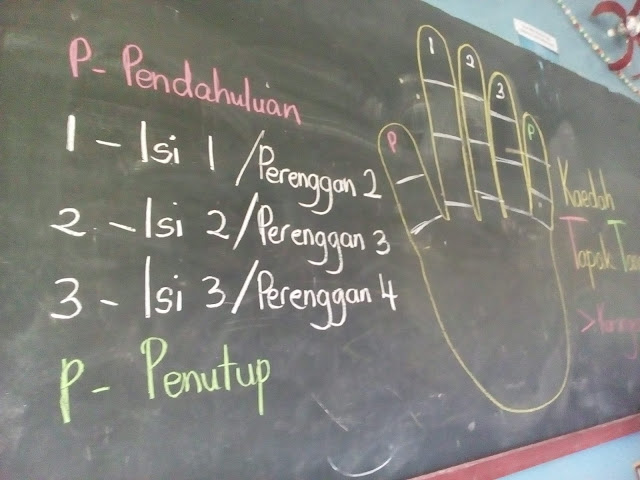 P - Pendahuluan
1 - Isi 1 / Perenggan 2
2 - Isi 2 / Perenggan 3
3 - Isi 3 / Perenggan 4
P - Penutup
P
1
2
3
P
Kaedah
Tapak